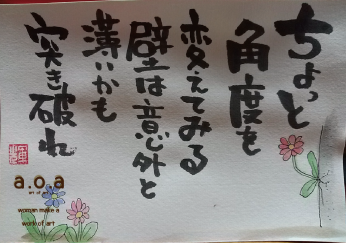 ちょっと
角度を
変えてみる
壁は意外と
薄いかも
突き破れ
a.o.a
art of
woman make a
work of art